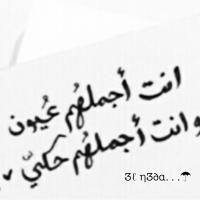 انت أجملهُم عُيون
وانت أجملهُم حَكيّ